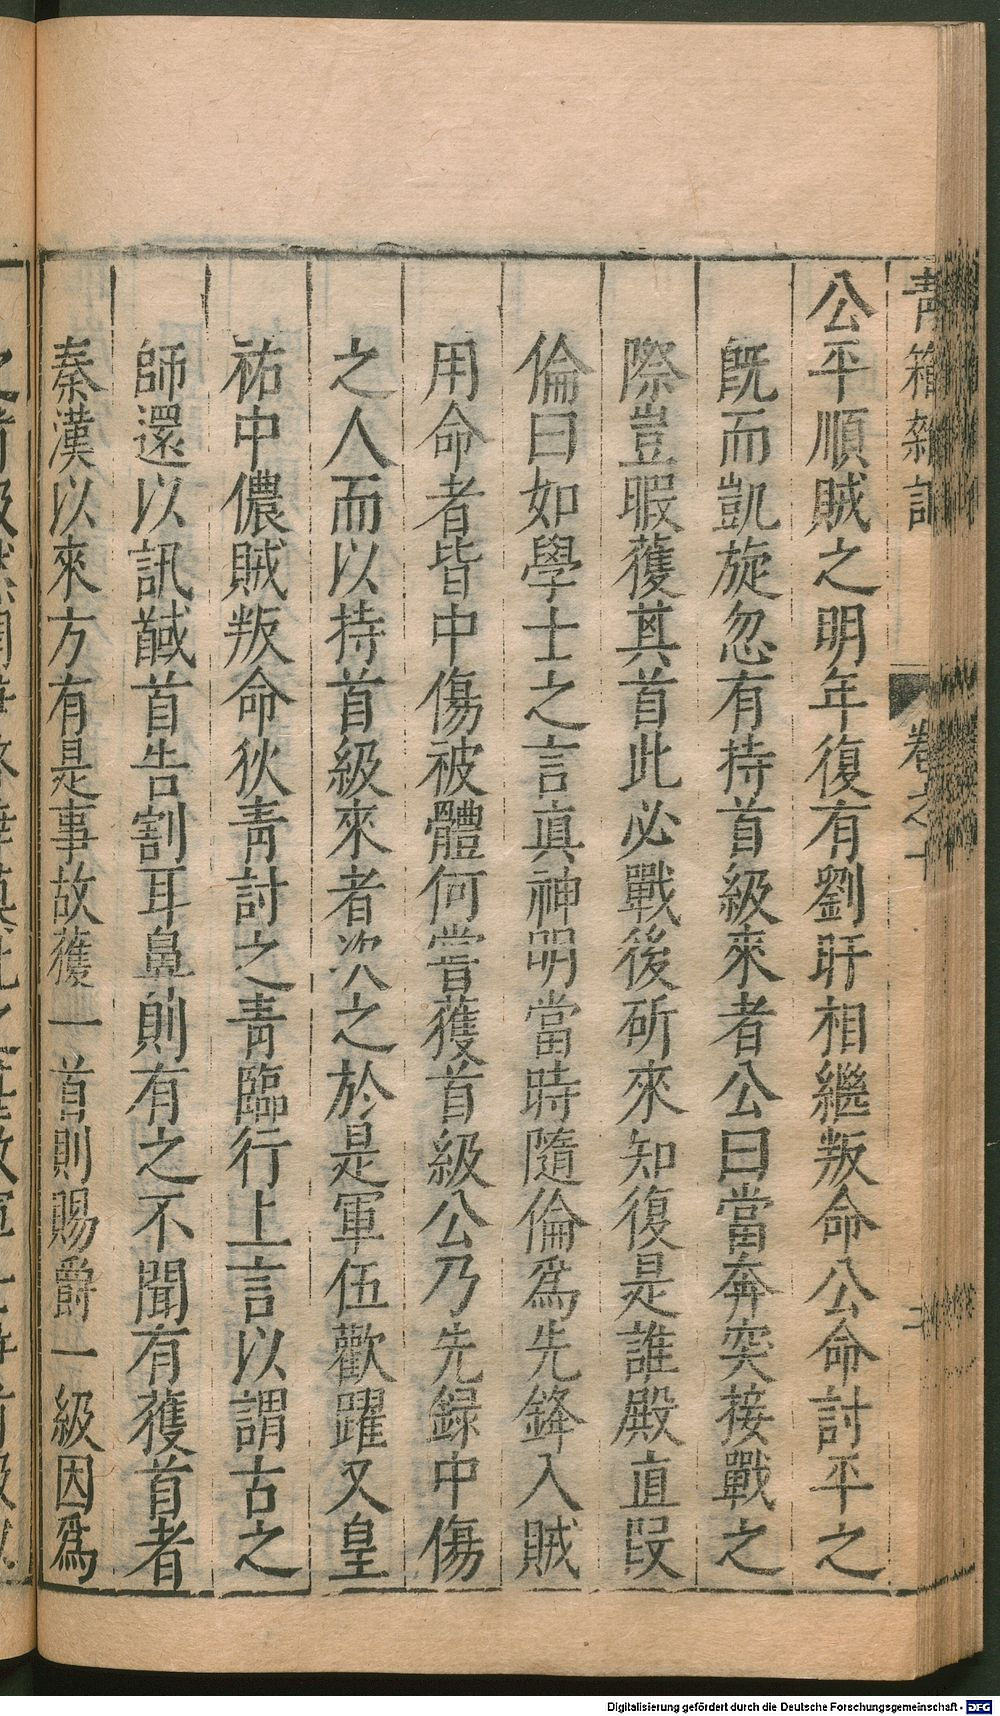 青箱雜記
卷之十
公平順賊之明年復有劉旰相繼叛命公命討平之
旣而凱旋忽有持首級來者公曰當奔突接戰之
際豈暇獲其首此必戰後斫來知復是誰殿直段
倫曰如學士之言眞神明當時隨倫爲先鋒入賊
用命者皆中傷被體何嘗獲首級公乃先録中傷
之人而以持首級來者次之於是軍伍歡躍又皇
祐中儂賊叛命狄靑討之靑臨行上言以謂古之
師還以訊馘首告割耳鼻則有之不聞有獲首者
秦漢以來方有是事故獲一首則賜爵一級因爲
Digitalisierung gefördert durch die Deutsche Forschungsgemeinschaft - DFG